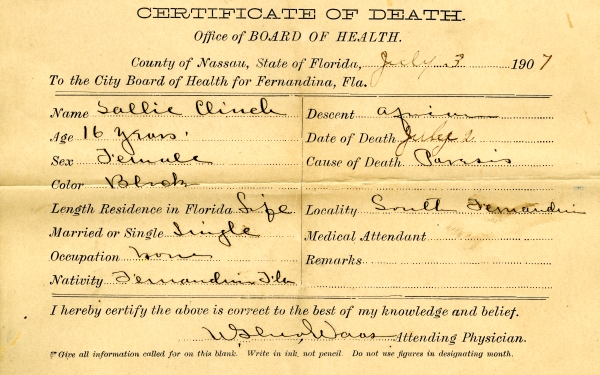 CERTIFICATE OF DEATH.
Office of BOARD OF HEALTH.
County of Nassau, State of Florida, July 3 1907
To the City Board of Health for Fernandina, Fla.
Name Sallie Clinch
Age 16 years.
Sex Female
Color Black
Length Residence in Florida Life
Married or Single Single
Occupation None
Nativity Fernandina Fla
Descent
Date of Death July 2
Cause of Death Paresis
Locality South Fernandina
Medical Attendant
Remarks
I hereby certify the above is correct to the best of my knowledge and belief.
Waas Attending Physician.
Give all information called for on this blank. Write in ink, not pencil. Do not use figures in designating month.